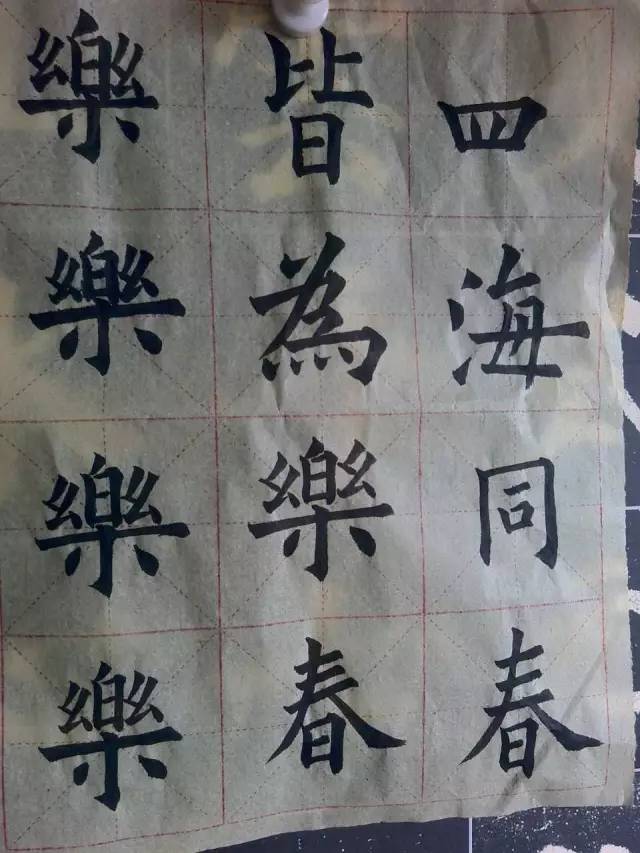 四海同春
皆為樂春
樂樂樂樂